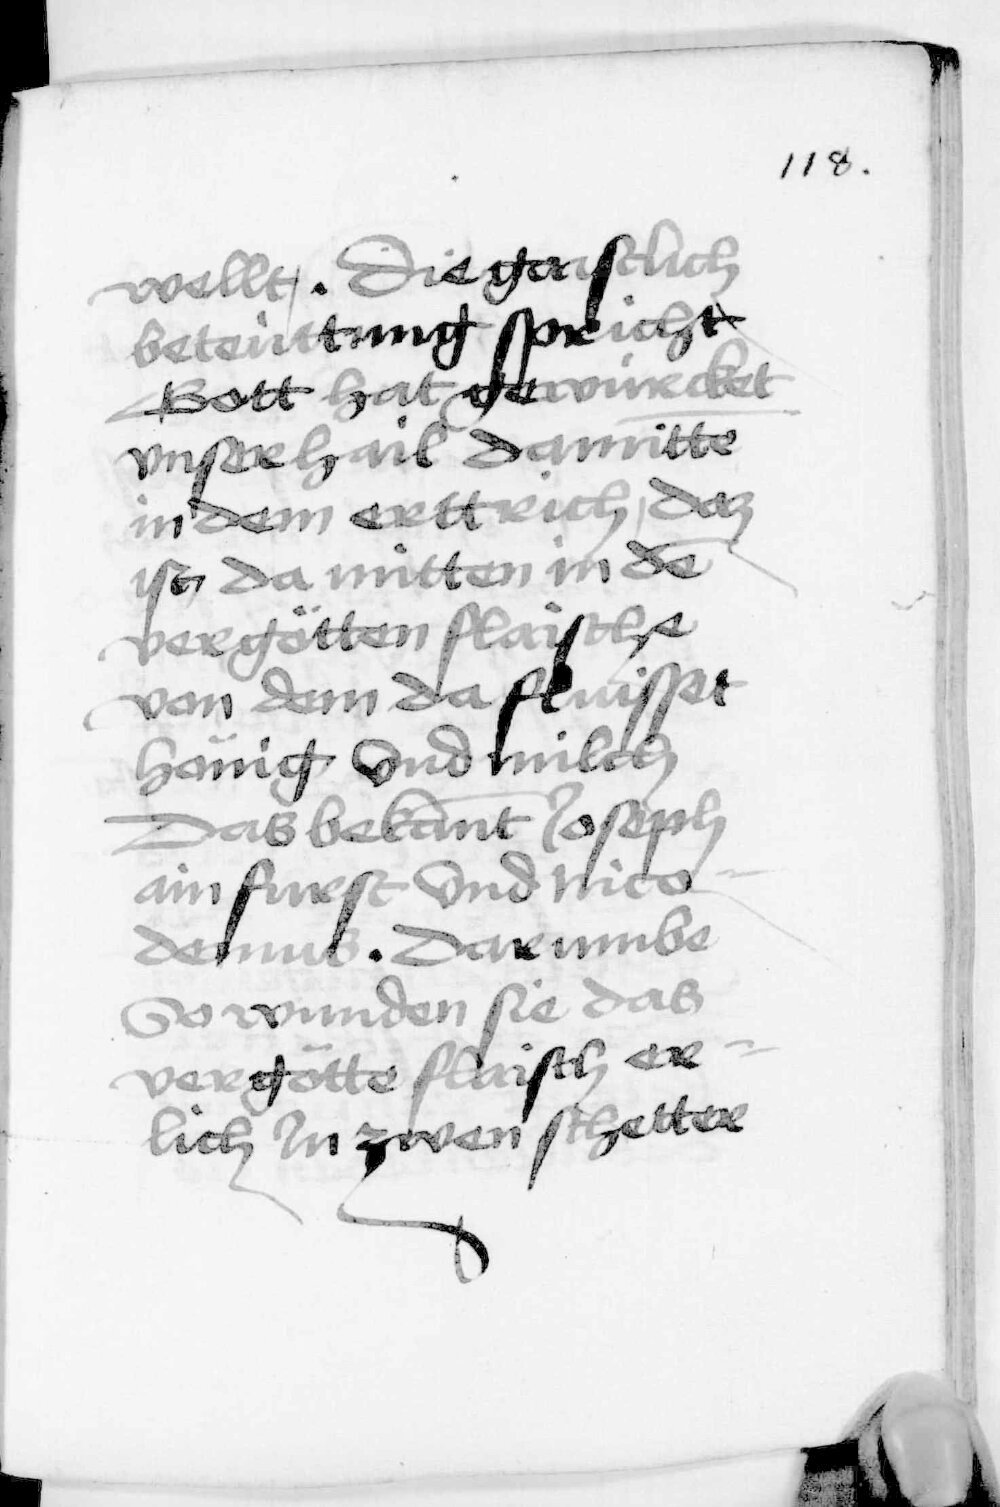 118.
wellt. Die gaistlich
beteüttung spricht
Gott hat gewürcket
vnser hail damittē
in dem erttrich, daz
ist, da mitten in dē
vergötten flaische
von dem da fluisset
hönig vnd milch
Das bekāntt Joseph
ain furst vnd nico-
demus. Dar umbe
So wunden sie das
vergötte flaisch er-
lich In zwen schetter